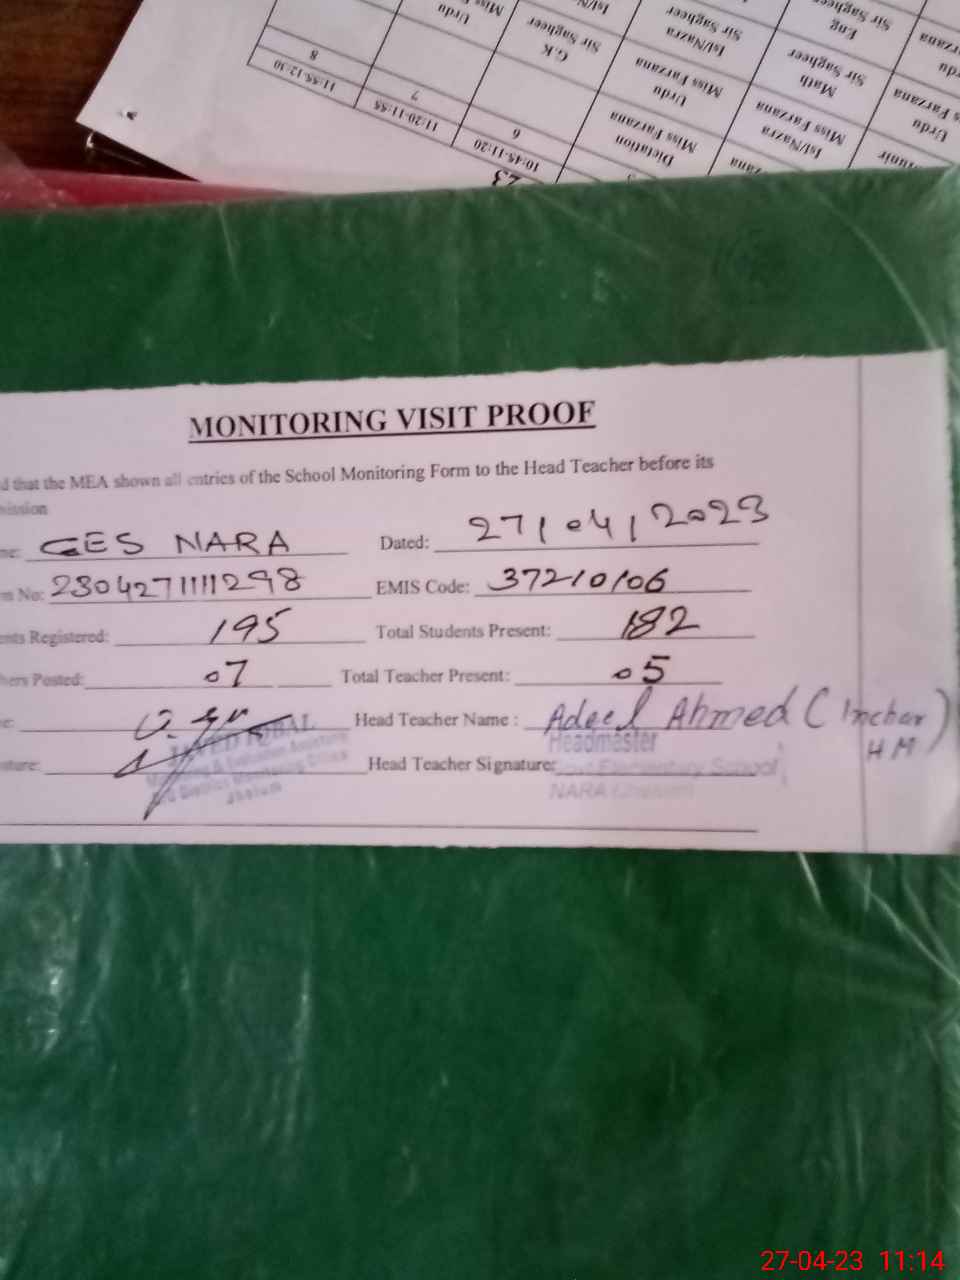 11:55-12:30
8
11:20-11:55
7
10:45-11:20
6
23
Dictation
Miss Farzana
Urdu
Miss Farzana
Isl/Nazra
Sir Sagheer
G.K
Sir Sagheer
Urdu
Isl/Nazra
Miss Farzana
Math
Sir Sagheer
Eng
Sir Sagheer
Urdu
MONITORING VISIT PROOF
d that the MEA shown all entries of the School Monitoring Form to the Head Teacher before its
mission
me: GES NARA Dated: 27/04/2023
m No: 2304271111298 EMIS Code: 37210106
ents Registered: 195 Total Students Present: 182
hers Posted: 07 Total Teacher Present: 05
e: Head Teacher Name : Adeel Ahmed (Inchar)
HM
ature: Head Teacher Signature:
JAVED IQBAL
Monitoring & Evaluation Assistant
District Monitoring Office
Jhelum
Headmaster
Govt Elementary School
NARA (Jhelum)
27-04-23 11:14